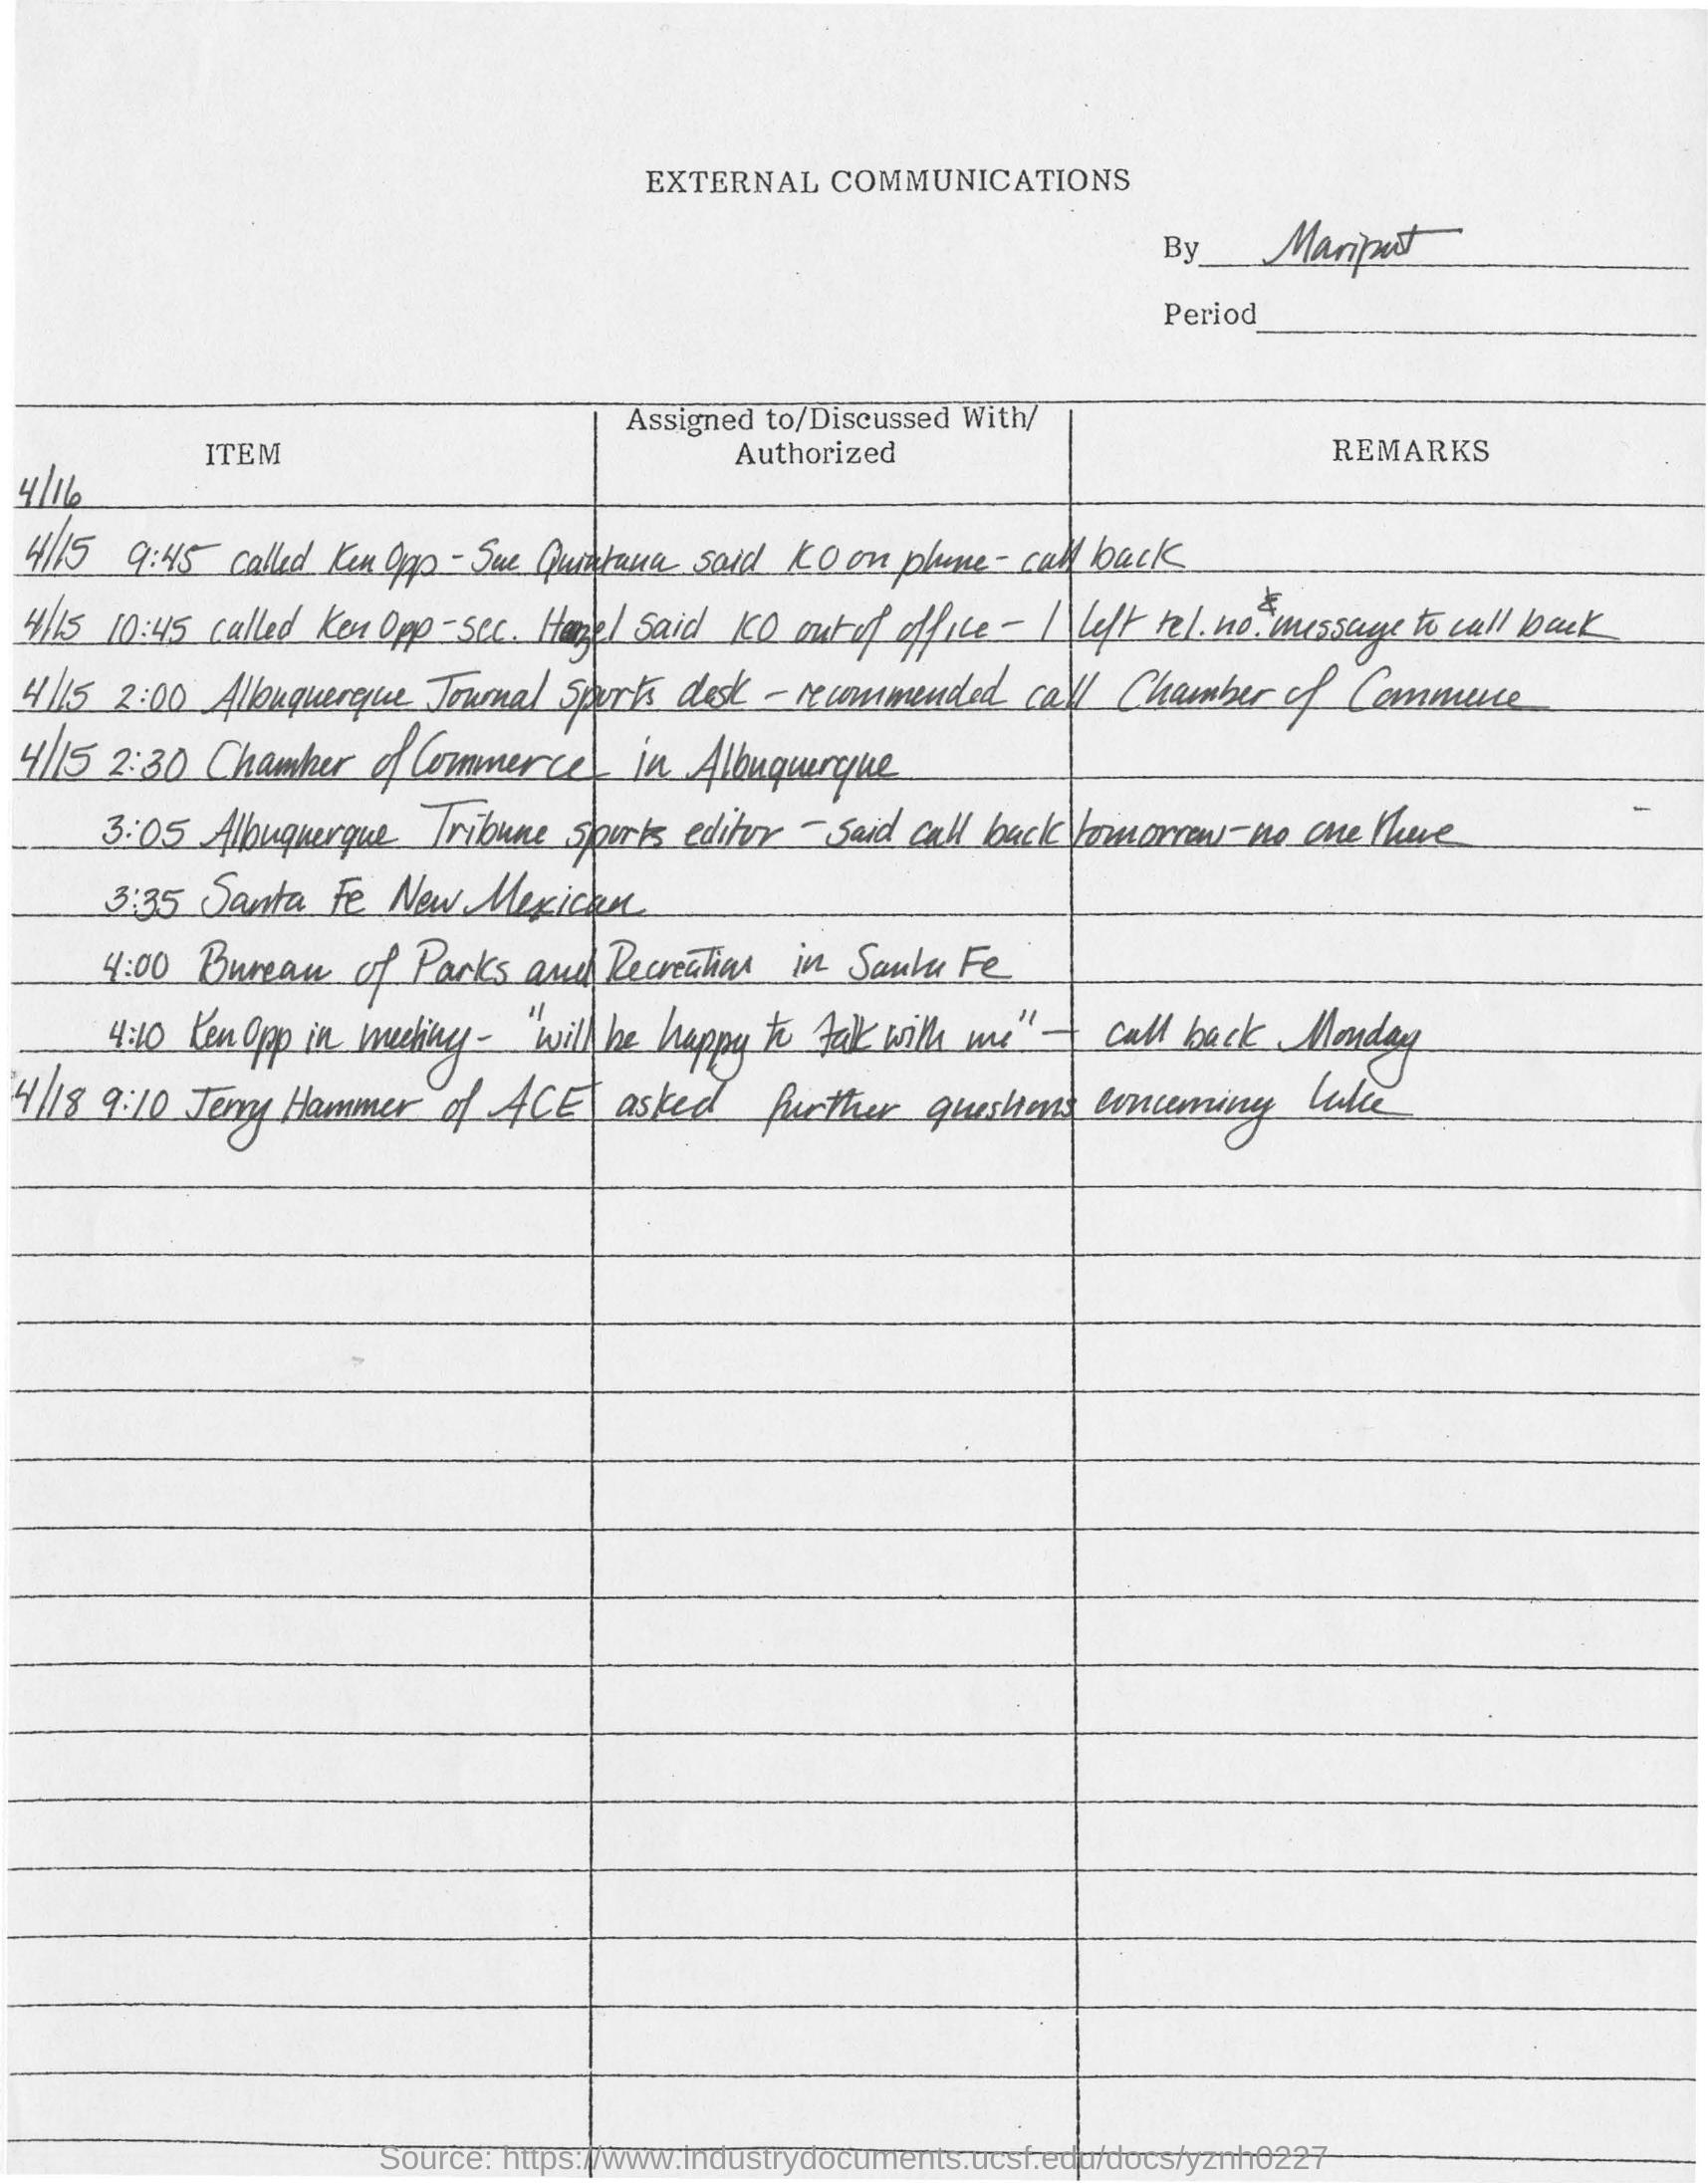 EXTERNAL COMMUNICATIONS
By Maripat
Period
ITEM
Assigned to/Discussed With/
Authorized
REMARKS
4/16
4/15 9:45 called Ken Opp - Sue Quintana said KO on phone - call back
4/15 10:45 called Ken Opp - sec. Hazel said KO out of office - I left tel. no. & message to call back
4/15 2:00 Albuquerque Journal sports desk - recommended call Chamber of Commerce
4/15 2:30 Chamber of Commerce in Albuquerque
3:05 Albuquerque Tribune sports editor - said call back tomorrow - no one there
3:35 Santa Fe New Mexican
4:00 Bureau of Parks and Recreation in Santa Fe
4:10 Ken Opp in meeting - "will be happy to talk with me" - call back Monday
4/18 9:10 Jerry Hammer of ACE asked further questions concerning lake
Source: https://www.industrydocuments.ucsf.edu/docs/yznh0227